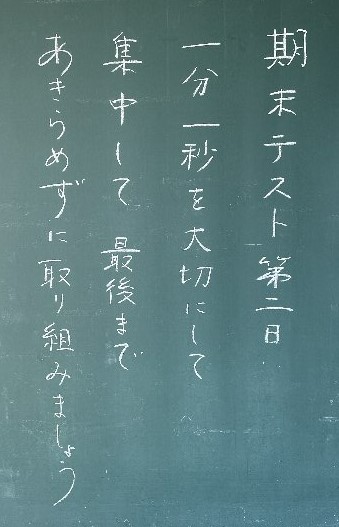 期末テスト第二日
一分一秒を大切にして
集中して 最後まで
あきらめずに取り組みましょう